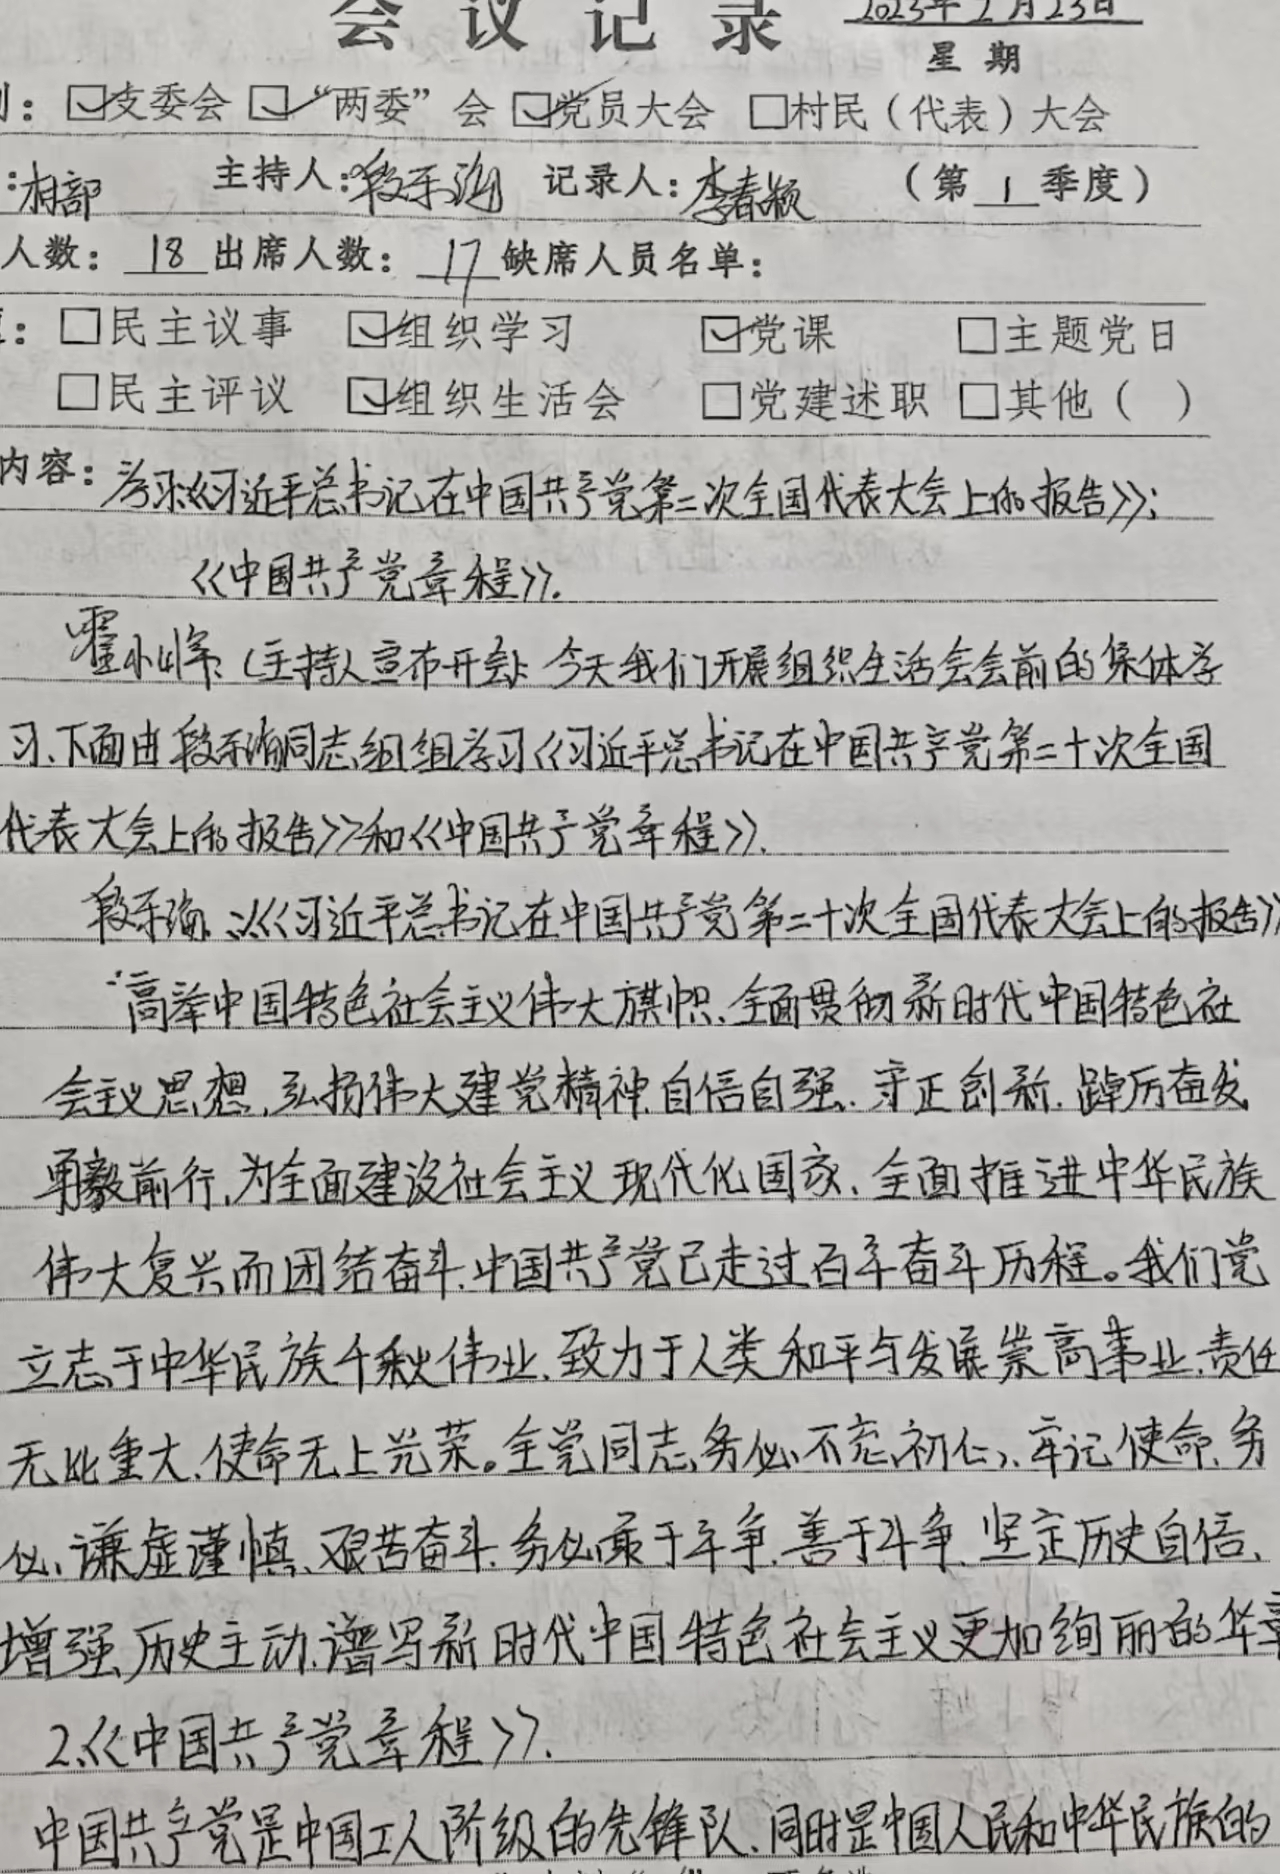 会议记录 2023年2月23日
星期
：☑支委会 ☑“两委”会 ☑党员大会 □村民（代表）大会
：村部 主持人： 记录人：李春颖 （第1季度）
人数：18 出席人数：17 缺席人员名单：
：□民主议事 ☑组织学习 ☑党课 □主题党日
□民主评议 ☑组织生活会 □党建述职 □其他（ ）
内容：学习《习近平总书记在中国共产党第二次全国代表大会上的报告》；
《中国共产党章程》.
霍小峰：（主持人宣布开会）：今天我们开展组织生活会会前的集体学
习、下面由同志组组学习《习近平总书记在中国共产党第二十次全国
代表大会上的报告》和《中国共产党章程》.
《习近平总书记在中国共产党第二十次全国代表大会上的报告》
高举中国特色社会主义伟大旗帜、全面贯彻新时代中国特色社
会主义思想、弘扬伟大建党精神、自信自强、守正创新、踔厉奋发
勇毅前行、为全面建设社会主义现代化国家、全面推进中华民族
伟大复兴而团结奋斗、中国共产党已走过百年奋斗历程。我们党
立志于中华民族千秋伟业、致力于人类和平与发展崇高事业、责任
无比重大、使命无上光荣。全党同志务必不忘初心、牢记使命、务
必、谦虚谨慎、艰苦奋斗、务必敢于斗争、善于斗争、坚定历史自信、
增强历史主动、谱写新时代中国特色社会主义更加绚丽的华章
2、《中国共产党章程》.
中国共产党是中国工人阶级的先锋队、同时是中国人民和中华民族的